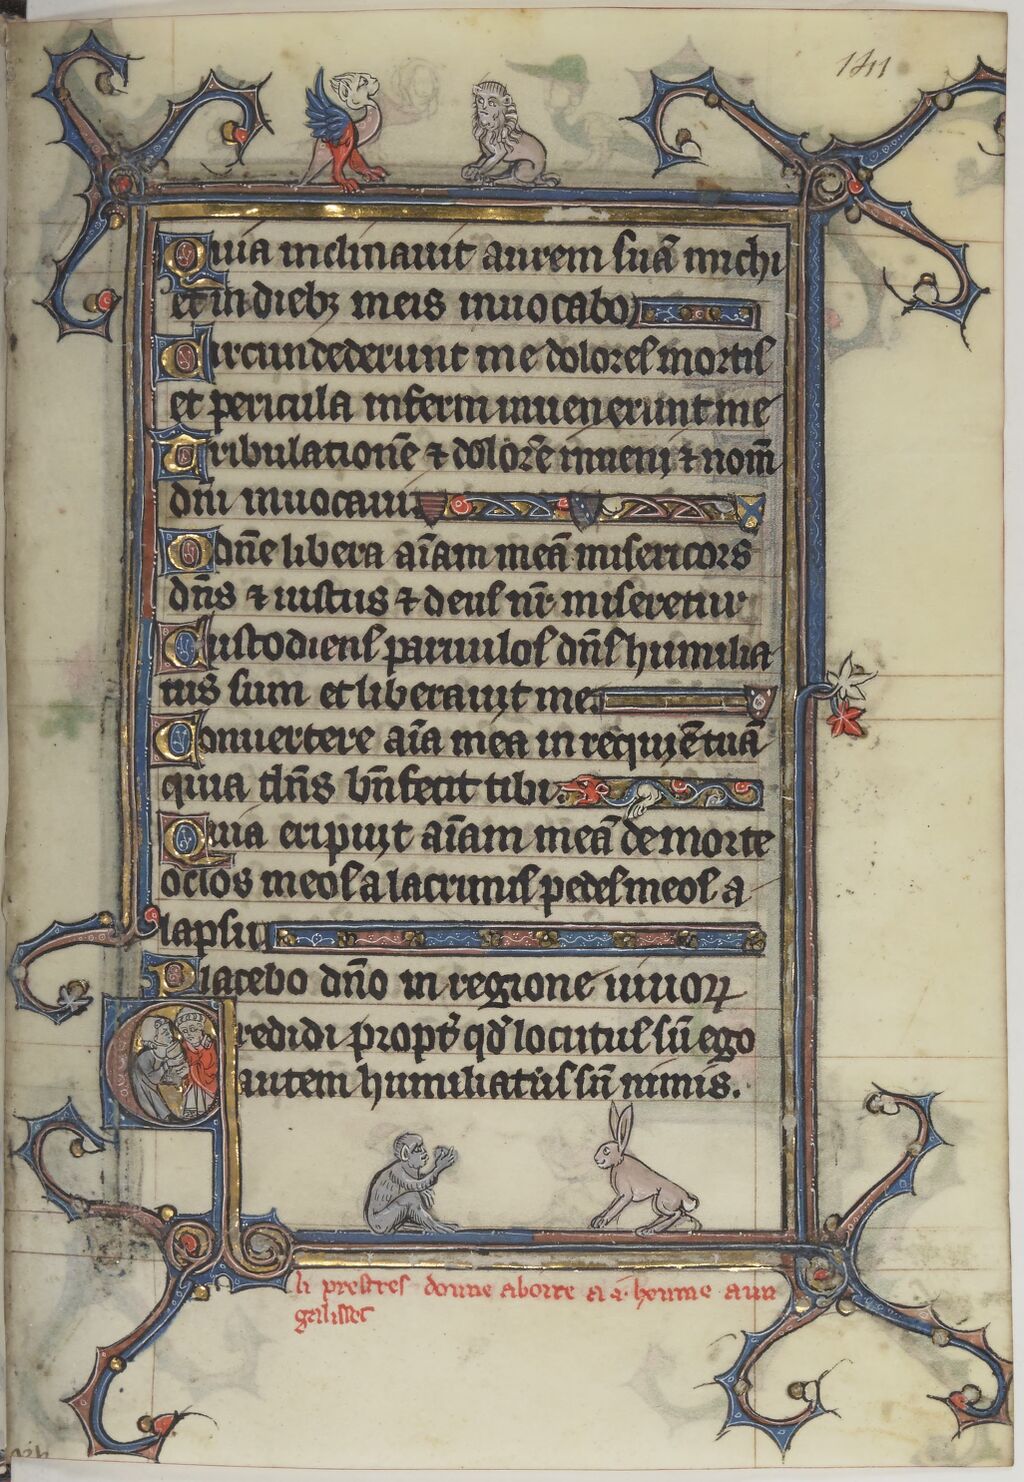 141
Quia inclinauit aurem suā michi
et in diebꝫ meis inuocabo
Circundederunt me dolores mortis
et pericula inferni inuenerunt me
Tribulationē ⁊ dolorē inueni ⁊ nom̄
dn̄i inuocaui
O dn̄e libera aīam meā misericors
dn̄s ⁊ iustus ⁊ deus nr̄ miseretur
Custodiens paruulos dn̄s humilia
tus sum et liberauit me
Conuertere aīa mea in requiē tuā
quia dn̄s bn̄fecit tibi
Quia eripuit aīam meā de morte
oclos meos a lacrimis pedes meos a
lapsu
Placebo dn̄o in regione uiuoꝝ
Credidi propt̄ qd̄ locutus sū ego
autem humiliatus sū nimis.
li prestres donne aboire a i home a un
galisset